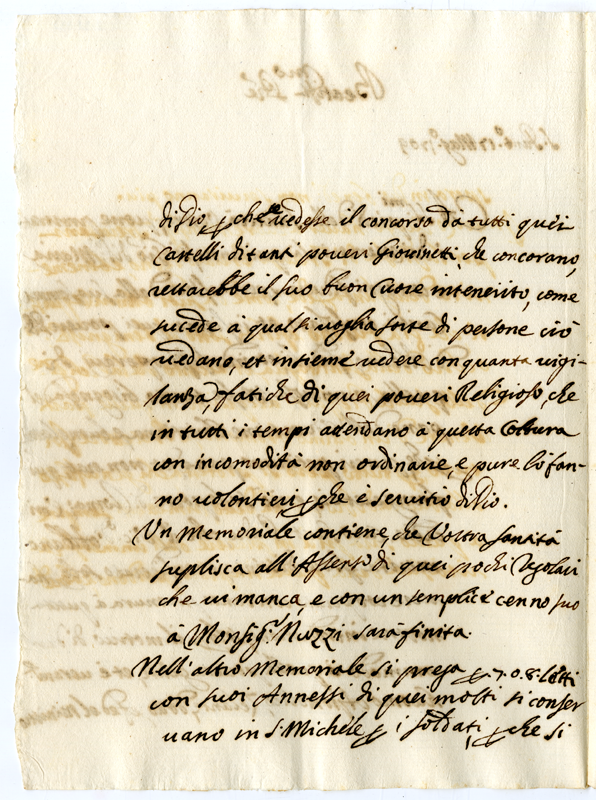 di Dio, p che se vedesse il concorso da tutti quei
Castelli di tanti poveri Giovinetti, che concorano,
restarebbe il suo buon Cuore intenerito, come
sucede à qual si voglia sorte di persone ciò
vedano, et insieme vedere con quanta vigi-
lanza, fatiche di quei poveri Religiosi, che
in tutti i tempi attendano à questa Coltura
con incomodità non ordinarie, e pure lo fan-
no volontieri p che è servitio di Dio.
Un Memoriale contiene, che Vostra Santità
suplisca all'Assenso di quei pochi
che vi manca, e con un semplice cenno suo
à Monsig.r Nuzzi sarà finita.
Nell'altro Memoriale si prega p 7. o 8. Letti
con suoi Annessi di quei molti si conser
vano in S. Michele p i soldati, p che si